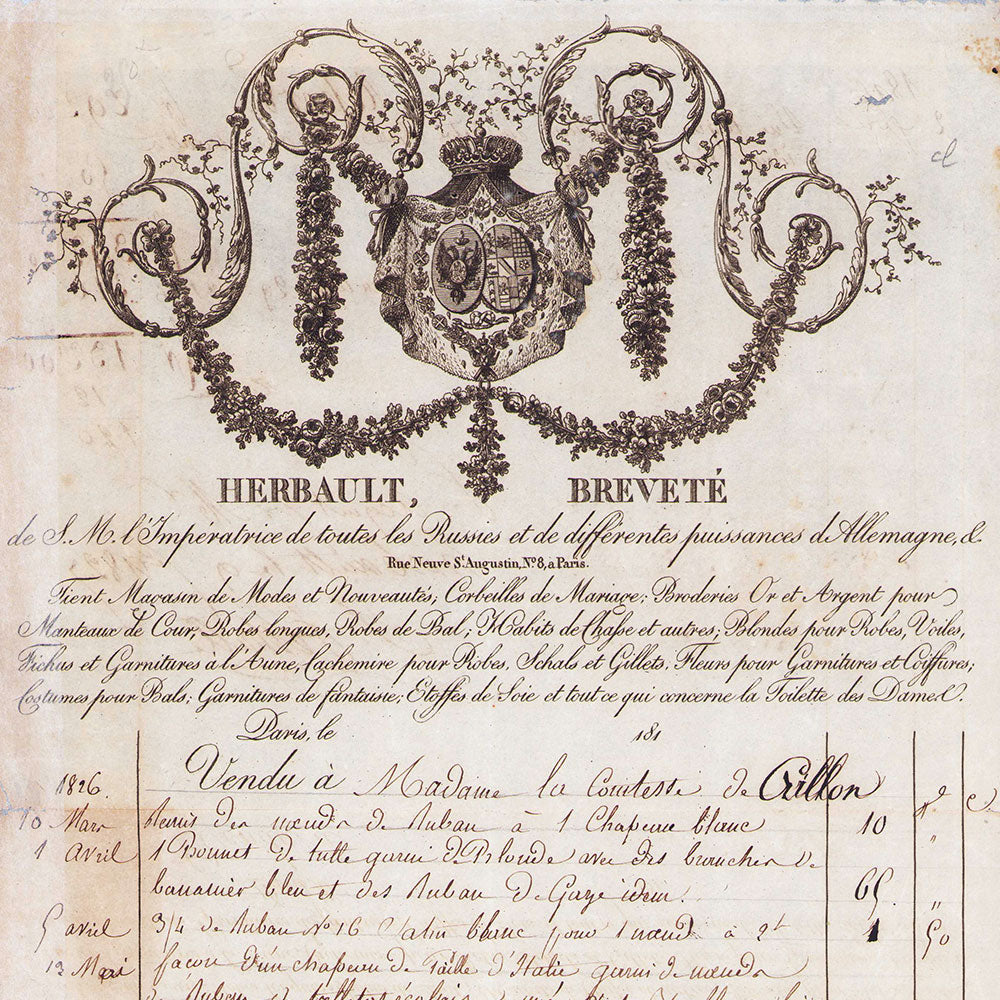 HERBAULT, BREVETÉ
de S. M. l'Impératrice de toutes les Russies et de différentes puissances d'Allemagne, &.
Rue Neuve St. Augustin, No. 8, a Paris.
Tient Magasin de Modes et Nouveautés, Corbeilles de Mariage; Broderies Or et Argent pour
Manteaux de Cour, Robes longues, Robes de Bal; Habits de Chasse et autres; Blondes pour Robes, Voiles,
Fichus et Garnitures à l'Aune, Cachemire pour Robes, Schals et Gillets, Fleurs pour Garnitures et Coiffures;
Costumes pour Bals; Garnitures de fantaisie; Etoffes de Soie et tout ce qui concerne la Toilette des Dames.
Paris, le 181
1826. Vendu à Madame la Comtesse de Crillon f c
10 Mars des nœuds de Ruban à 1 Chapeau blanc 10 "
1 Avril 1 Bonnet de tulle garni de Blonde avec des branches de
bananier bleu et des Ruban de Gaze idem. 65. "
5 avril 3/4 de Ruban No 16 Satin blanc pour 1 nœud à 2f 1 50
13 Mai façon d'un chapeau de Paille d'Italie garni de nœuds
de Ruban